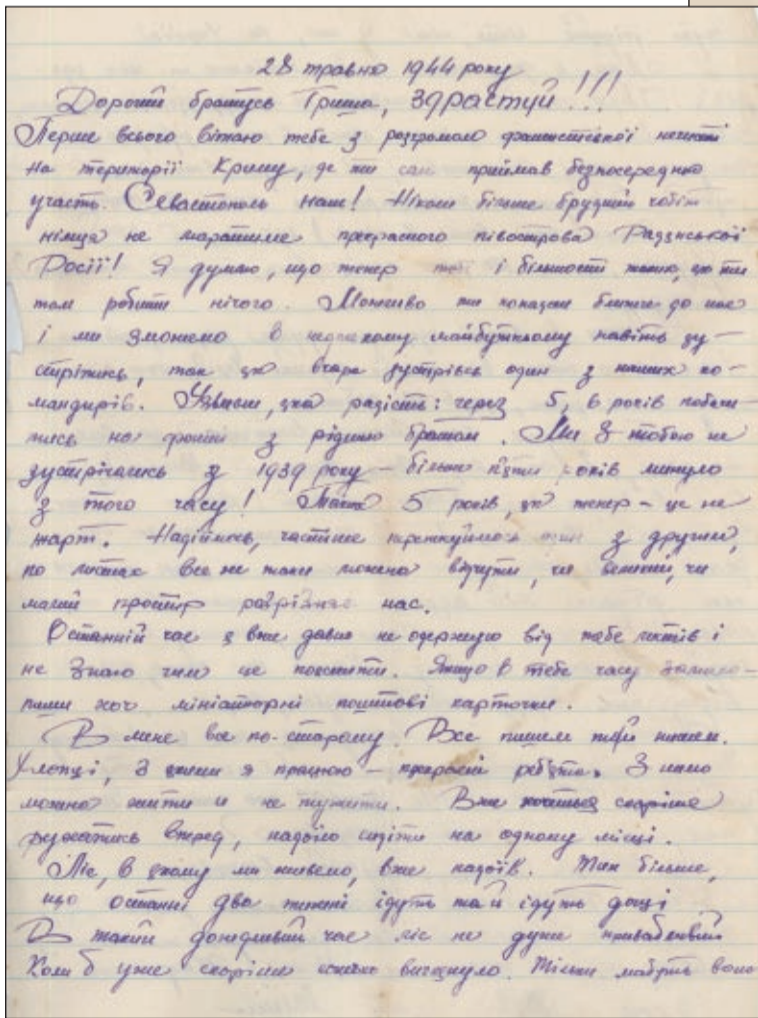 28 травня 1944 року
Дорогий братусь Гриша, здрастуй!!!
Перше всього вітаю тебе з розгромом фашистської нечисті
на території Криму, де ти сам приймав безпосередню
участь. Севастополь наш! Ніколи більше брудний чобіт
німця не маратиме прекрасного півострова Радянської
Росії! Я думаю, що тепер і більшості що ти
там робити нічого. Можливо ти попадеш ближче до нас
і ми зможемо в недалекому майбутньому навіть зу-
стрітись, так як вчора зустрівсь один з наших ко-
мандирів. Уявиш, яка радість: через 5, 6 років побачи-
тись на фронті з рідним братом. Ми з тобою не
зустрічались з 1939 року – більше п'яти років минуло
з того часу! 5 років, як тепер – це не
жарт. Надіймось, частіше один з другим,
по листах все ж таки можна відчути, чи великий, чи
малий простір розрізняє нас.
Останній час я вже давно не одержую від тебе листів і
не знаю чим це пояснити. Якщо в тебе часу замало –
пиши хоч мініатюрні поштові карточки.
В мене все по-старому. Все пишем та й пишем.
Хлопці, з якими я працюю – прекрасні реб'ята. З ними
можна жити и не тужити. Вже хочеться скоріше
рухатись вперед, надоїло сидіти на одному місці.
Ліс, в якому ми живемо, вже надоїв. Тим більше,
що останні два тижні ідуть та й ідуть дощі
В такий дождливий час ліс не дуже привабливий
Коли б уже скоріше сонечко виглянуло. Тільки мабуть воно